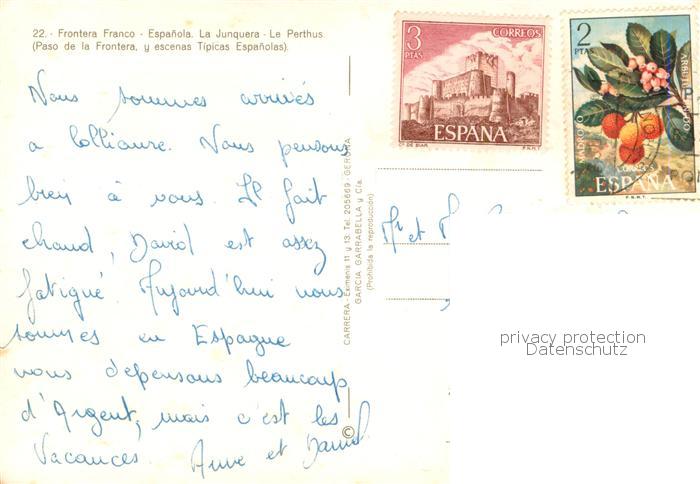 22. - Frontera Franco - Española. La Junquera - Le Perthus
(Paso de la Frontera, y escenas Típicas Españolas).
Nous sommes arrivés
a Collioure. Nous pensons
bien à vous. Il fait
chaud, David est assez
fatigué Aujourd'hui nous
sommes en Espagne
nous dépensons beaucoup
d'Argent, mais c'est les
Vacances Anne et David
CARRERA - Eximenis 11 y 13. Tel. 205669 - GERONA
GARCIA GARRABELLA y Cía.
(Prohibida la reproducción)
©
3
PTAS
CORREOS
ESPAÑA
Cº DE BIAR
F.N.M.T.
2
PTAS
MADROÑO
CORREOS
ESPAÑA
F.N.M.T.
Mr et M
privacy protection
Datenschutz